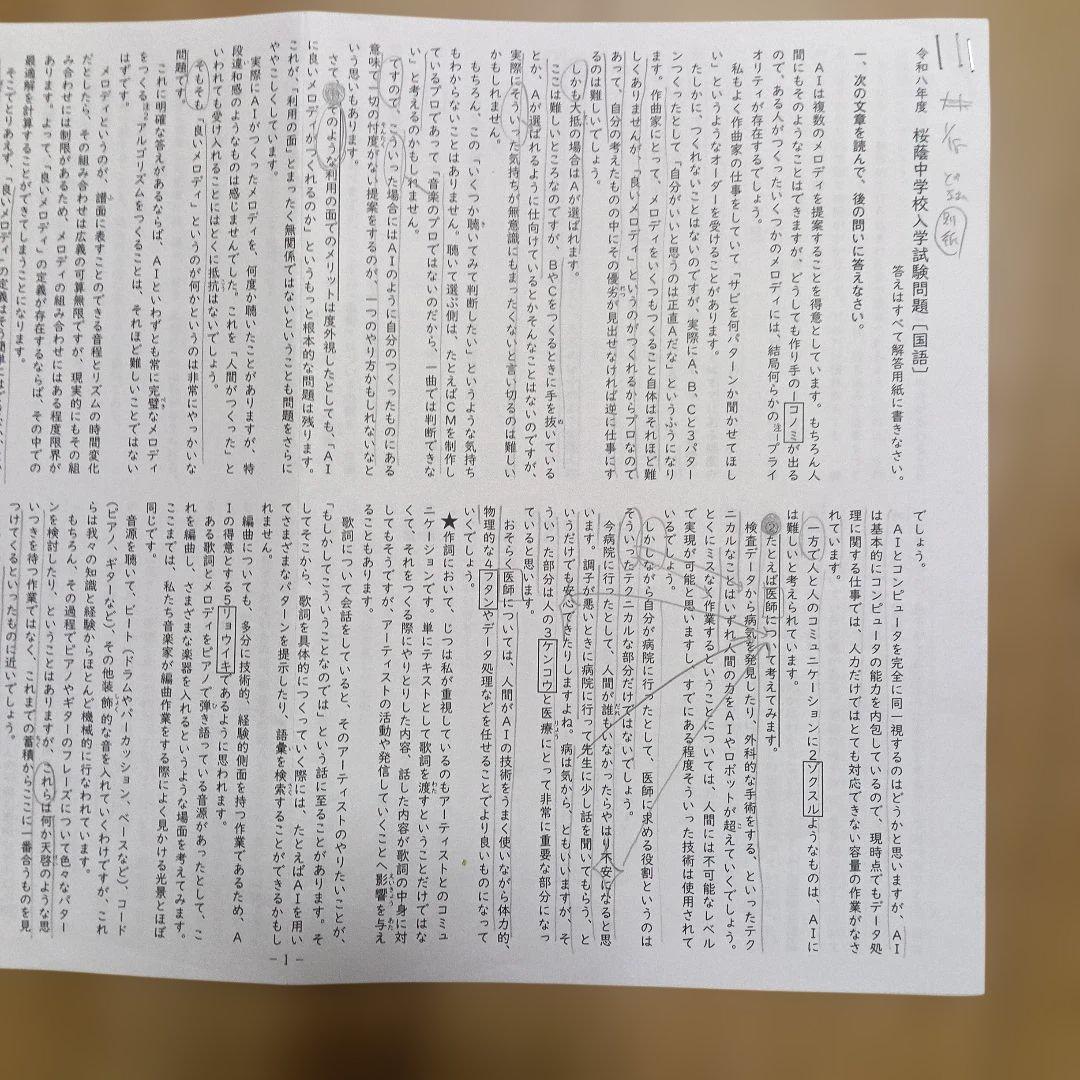 令和八年度　桜蔭中学校入学試験問題［国語］
答えはすべて解答用紙に書きなさい。
別紙
一、次の文章を読んで、後の問いに答えなさい。
ＡＩは複数のメロディを提案することを得意としています。もちろん人
間にもそのようなことはできますが、どうしても作り手の1コノミが出る
ので、ある人がつくったいくつかのメロディには、結局何らかの注1プライ
オリティが存在するでしょう。
私もよく作曲家の仕事をしていて「サビを何パターンか聞かせてほし
い」というようなオーダーを受けることがあります。
たしかに、つくれないことはないのですが、実際にＡ、Ｂ、Ｃと３パター
ンつくったとして「自分がいいと思うのは正直Ａだな」というふうになり
ます。作曲家にとって、メロディをいくつもつくること自体はそれほど難
しくありませんが、「良いメロディ」というのがつくれるからプロなので
あって、自分の考えたものの中にその優劣が見出せなければ逆に仕事にす
るのは難しいでしょう。
しかも大抵の場合はＡが選ばれます。
ここは難しいところなのですが、ＢやＣをつくるときに手を抜いている
とか、Ａが選ばれるように仕向けているとかそんなことはないのですが、
実際にそういった気持ちが無意識にもまったくないと言い切るのは難しい
かもしれません。
もちろん、この「いくつか聴いてみて判断したい」というような気持ち
もわからないことはありません。聴いて選ぶ側は、たとえばＣＭを制作し
ているプロであって「音楽のプロではないのだから、一曲では判断できな
い」と考えるのかもしれません。
ですので、こういった場合にはＡＩのように自分のつくったものにある
意味で一切の忖度がない提案をするのが、一つのやり方かもしれないなと
いう思いもあります。
さて、そのような利用の面でのメリットは度外視したとしても、「ＡＩ
に良いメロディがつくれるのか」というもっと根本的な問題は残ります。
これが、「利用の面」とまったく無関係ではないということも問題をさらに
ややこしくしています。
実際にＡＩがつくったメロディを、何度か聴いたことがありますが、特
段違和感のようなものは感じませんでした。これを「人間がつくった」と
いわれても受け入れることにはとくに抵抗はないでしょう。
そもそも「良いメロディ」というのが何かというのは非常にやっかいな
問題です。
これに明確な答えがあるならば、ＡＩといわずとも常に完璧なメロディ
をつくる注2アルゴリズムをつくることは、それほど難しいことではない
はずです。
メロディというのが、譜面に表すことのできる音程とリズムの時間変化
だとしたら、その組み合わせは広義の可算無限ですが、現実的にもその組
み合わせには制限があるため、メロディの組み合わせにはある程度限界が
あります。よって、「良いメロディ」の定義が存在するならば、その中での
最適解を計算することができてしまうことになります。
でしょう。
ＡＩとコンピュータを完全に同一視するのはどうかと思いますが、ＡＩ
は基本的にコンピュータの能力を内包しているので、現時点でもデータ処
理に関する仕事では、人力だけではとても対応できない容量の作業がなさ
れています。
一方で人と人のコミュニケーションに2ゾクスルようなものは、ＡＩに
は難しいと考えられています。
②たとえば医師について考えてみます。
検査データから病気を発見したり、外科的な手術をする、といったテク
ニカルなことはいずれ人間の力をＡＩやロボットが超えていくでしょう。
とくにミスなく作業するということについては、人間には不可能なレベル
で実現が可能と思いますし、すでにある程度そういった技術は使用されて
いるでしょう。
しかしながら自分が病院に行ったとして、医師に求める役割というのは
そういったテクニカルな部分だけではないでしょう。
今病院に行ったとして、人間が誰もいなかったらやはり不安になると思
います。調子が悪いときに病院に行って先生に少し話を聞いてもらう、と
いうだけでも安心できたりしますよね。病は気から、ともいいますが、そ
ういった部分は人の3ケンコウと医療にとって非常に重要な部分になっ
ていると思います。
おそらく医師については、人間がＡＩの技術をうまく使いながら体力的、
物理的な4フタンやデータ処理などを任せることでより良いものになって
いくでしょう。
★作詞において、じつは私が重視しているのもアーティストとのコミュ
ニケーションです。単にテキストとして歌詞を渡すということだけではな
くて、それをつくる際にやりとりした内容、話した内容が歌詞の中身に対
してもそうですが、アーティストの活動や発信していくことへ影響を与え
ることもあります。
歌詞について会話をしていると、そのアーティストのやりたいことが、
「もしかしてこういうことなのでは」という話に至ることがあります。そ
してそこから、歌詞を具体的につくっていく際には、たとえばＡＩを用い
てさまざまなパターンを提示したり、語彙を検索することができるかもし
れません。
編曲についても、多分に技術的、経験的側面を持つ作業であるため、Ａ
Ｉの得意とする5リョウイキであるように思われます。
ある歌詞とメロディをピアノで弾き語っている音源があったとして、こ
れを編曲し、さまざまな楽器を入れるというような場面を考えてみます。
ここまでは、私たち音楽家が編曲作業をする際によく見かける光景とほぼ
同じです。
音源を聴いて、ビート（ドラムやパーカッション、ベースなど）、コード
（ピアノ、ギターなど）、その他装飾的な音を入れていくわけですが、これ
らは我々の知識と経験からほとんど機械的に行なわれています。
もちろん、その過程でピアノやギターのフレーズについて色々なパター
ンを検討したり、ということはありますが、これらは何か天啓のような思
いつきを待つ作業ではなく、これまでの蓄積からここに一番合うものを見
つけてくるといったものに近いでしょう。
－1－